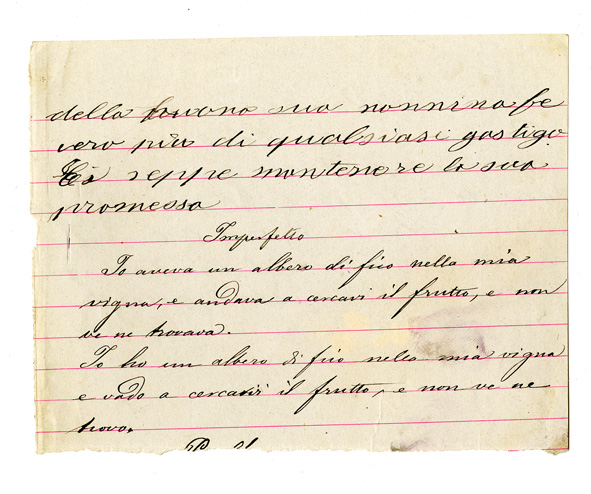 della buona sua nonnina fe
cero più di qualsiasi gastigo.
Ei seppe mantenere la sua
promessa
Imperfetto
Io aveva un albero di fico nella mia
vigna, e andava a cercavi il frutto, e non
ve ne trovava.
Io ho un albero di fico nella mia vigna
e vado a cercarvi il frutto, e non ve ne
trovo.